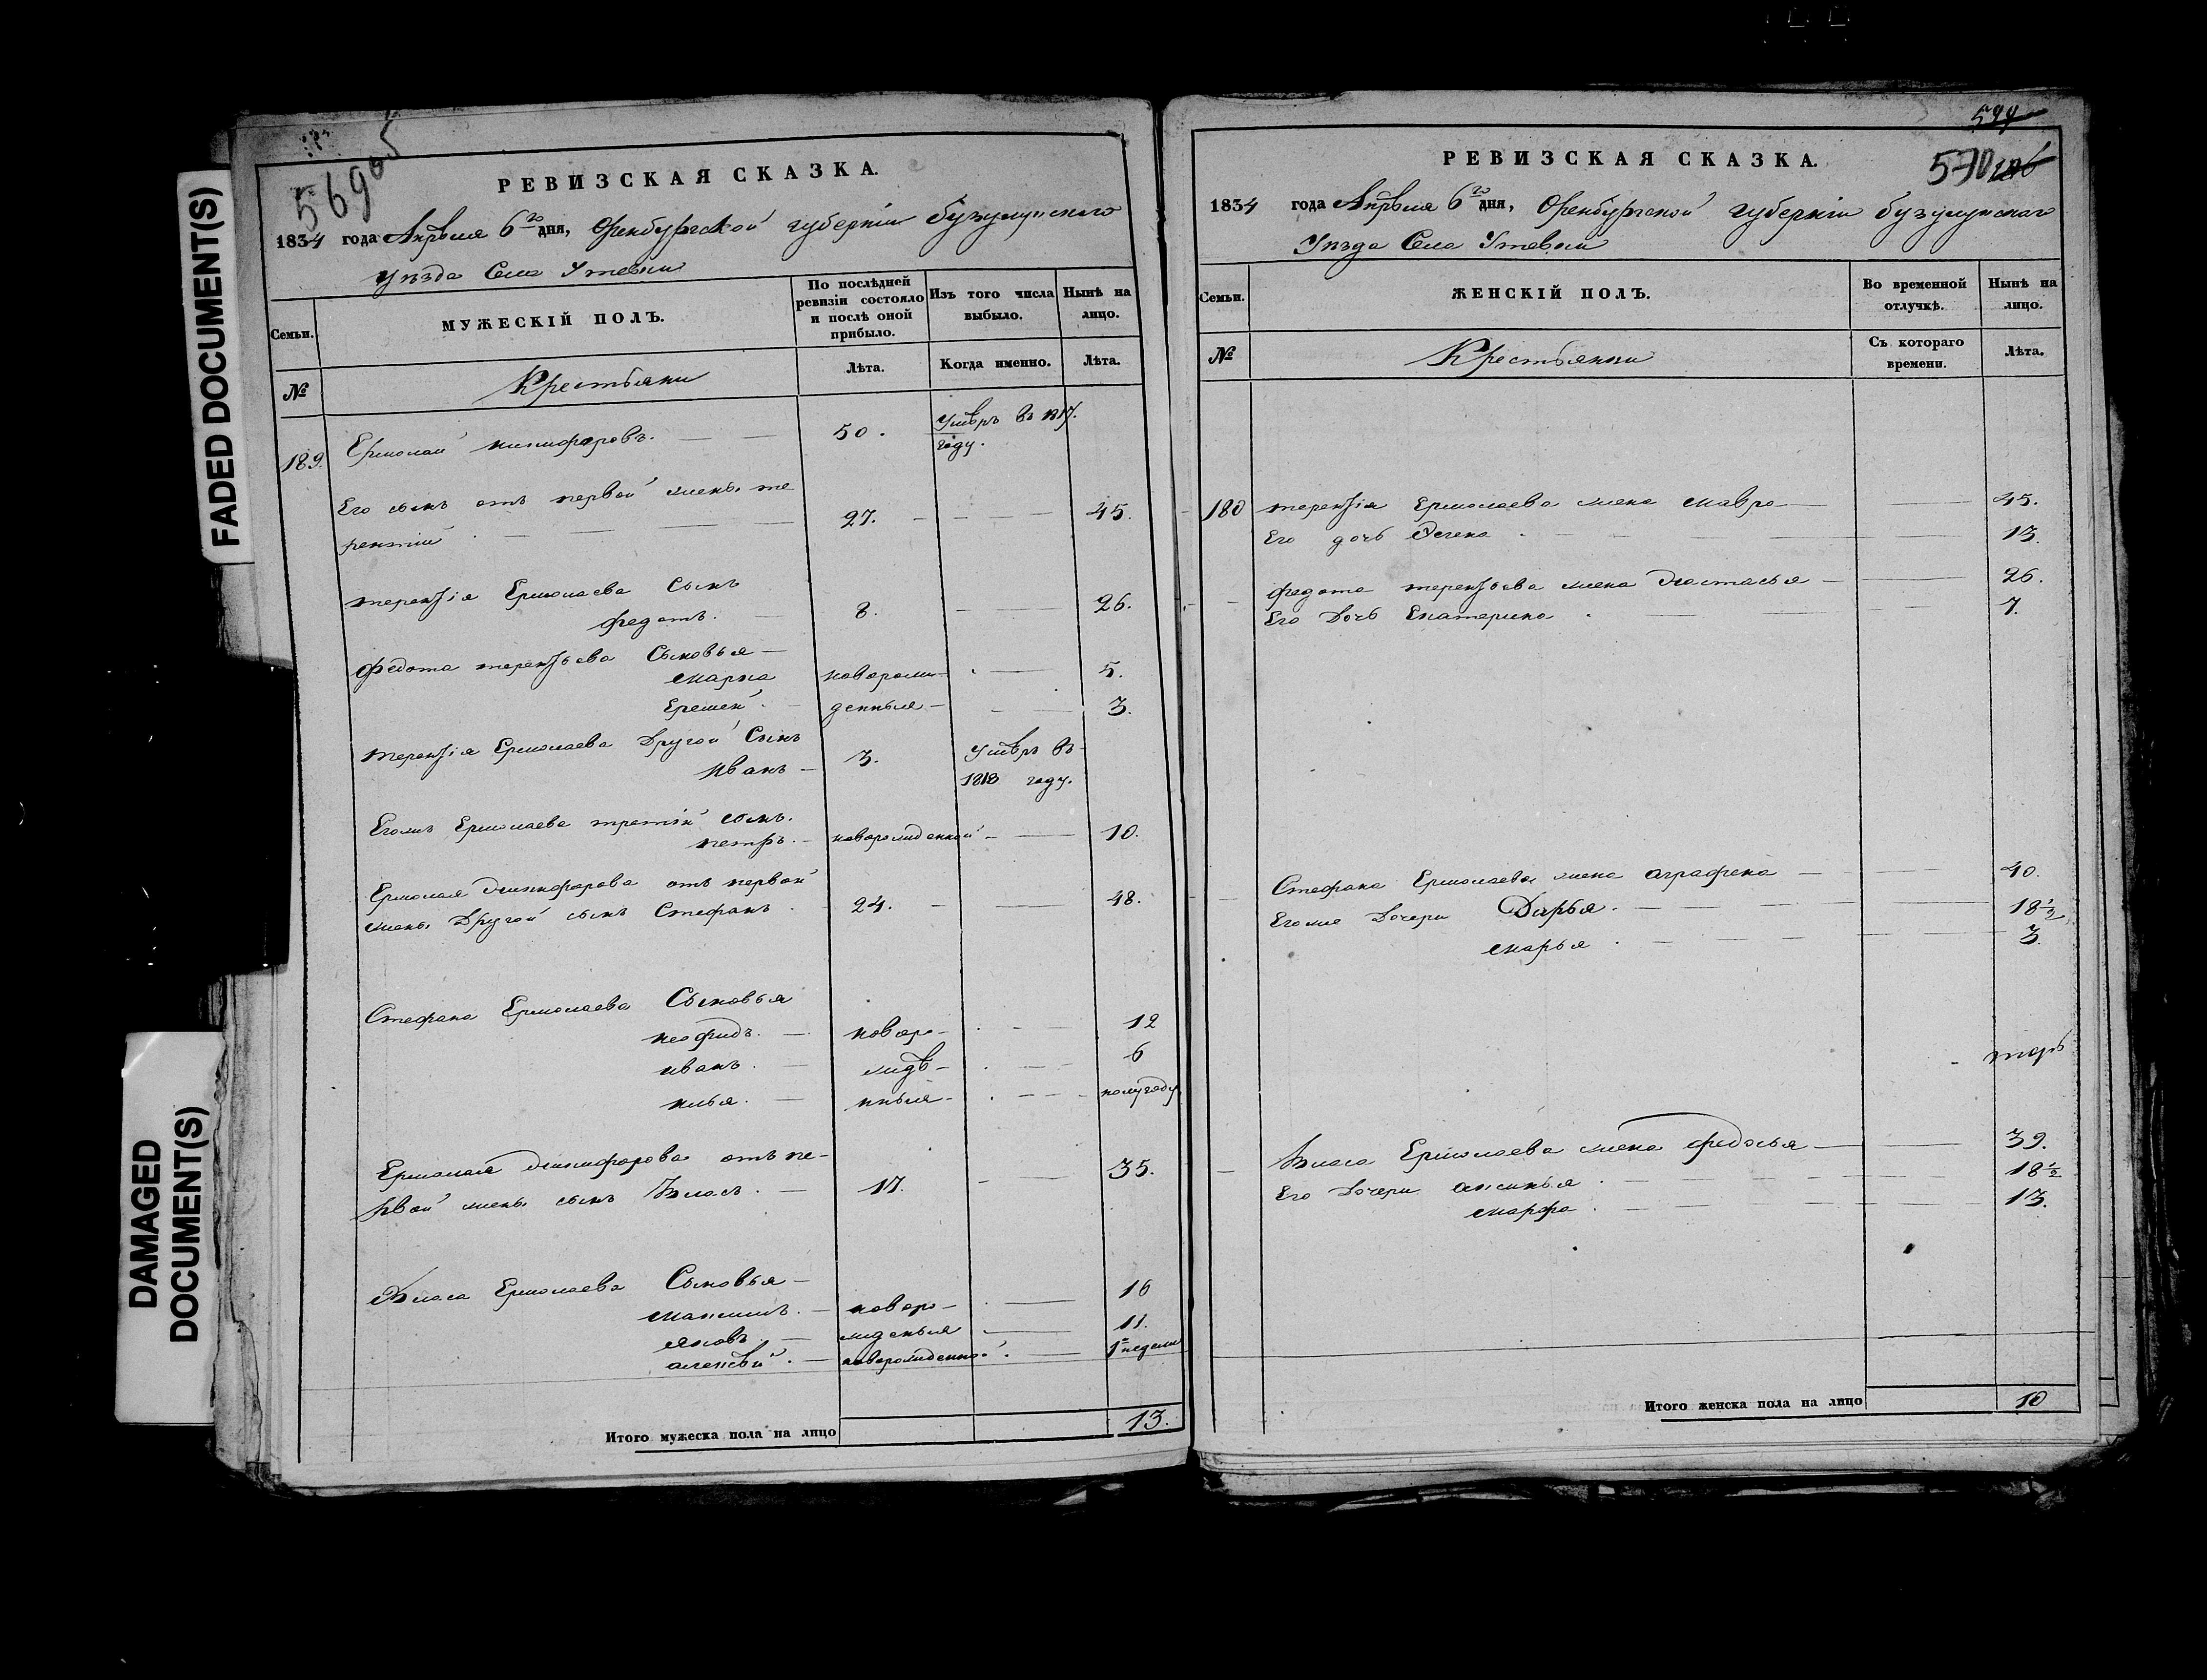 FADED DOCUMENT(S)
DAMAGED
DOCUMENT(S)
569 об
РЕВИЗСКАЯ СКАЗКА.
1834 года Апреля 6го дня, Оренбургской губернiи бузулукского
уезда Села Утевки
Семьи.
МУЖЕСКІЙ ПОЛЪ.
По послѣдней ревизіи состояло и послѣ оной прибыло.
Изъ того числа выбыло.
Нынѣ на лицо.
№
Крестьяни
Лѣта.
Когда именно.
Лѣта.
189. Ермолай никифоровъ. 50. Умѣръ въ 1817.
году.
Его сынъ отъ первой жены те
рентiй 27. 45.
терентiя Ермолаева Сынъ
федотъ. 8. 26.
федота терентьева Сыновья
марка новорож- 5.
Еремей денныя 3.
терентiя Ермолаева Другой Сынъ
Иванъ 3. Умѣръ въ
1818 году.
Егожъ Ермолаева третiй сынъ.
петръ. новорожденной 10.
Ермолая никифорова отъ первой
жены Другой сынъ Стефанъ 24. 48.
Стефана Ермолаева Сыновья
неофидъ. новоро- 12
иванъ. ждѣ- 6
илья. нныя полугоду
Ермолая никифорова отъ пе-
рвой жены сынъ Власъ. 17. 35.
Власа Ермолаева Сыновья
максимъ. новоро- 16
яковъ жденыя 11.
алексѣй. новорожденной. 1 недели
Итого мужеска пола на лицо 13.
599
570
РЕВИЗСКАЯ СКАЗКА.
1834 года Апреля 6го дня, Оренбургской губернiи бузулукскаго
Уезда Села Утевки
Семьи.
ЖЕНСКІЙ ПОЛЪ.
Во временной отлучкѣ.
Нынѣ на лицо.
№
Крестьянки
Съ котораго времени.
Лѣта.
180 терентiя Ермолаева жена мавра 45.
Его дочь Елена 13.
федота терентьева жена настасья 26.
Его Дочь Екатерина 7.
Стефана Ермолаева жена аграфена 40.
Егоже Дочери Дарья. 18 1/2
марья 3.
Власа Ермолаева жена федосья 39.
Его Дочери аксинья 18 1/2
марфа 13.
Итого женска пола на лицо 10